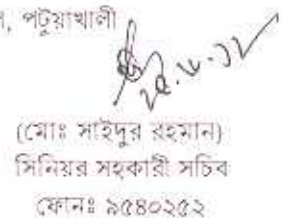 , পটুয়াখালী
(মোঃ সাইদুর রহমান)
সিনিয়র সহকারী সচিব
ফোনঃ ৯৫৪০২৫২